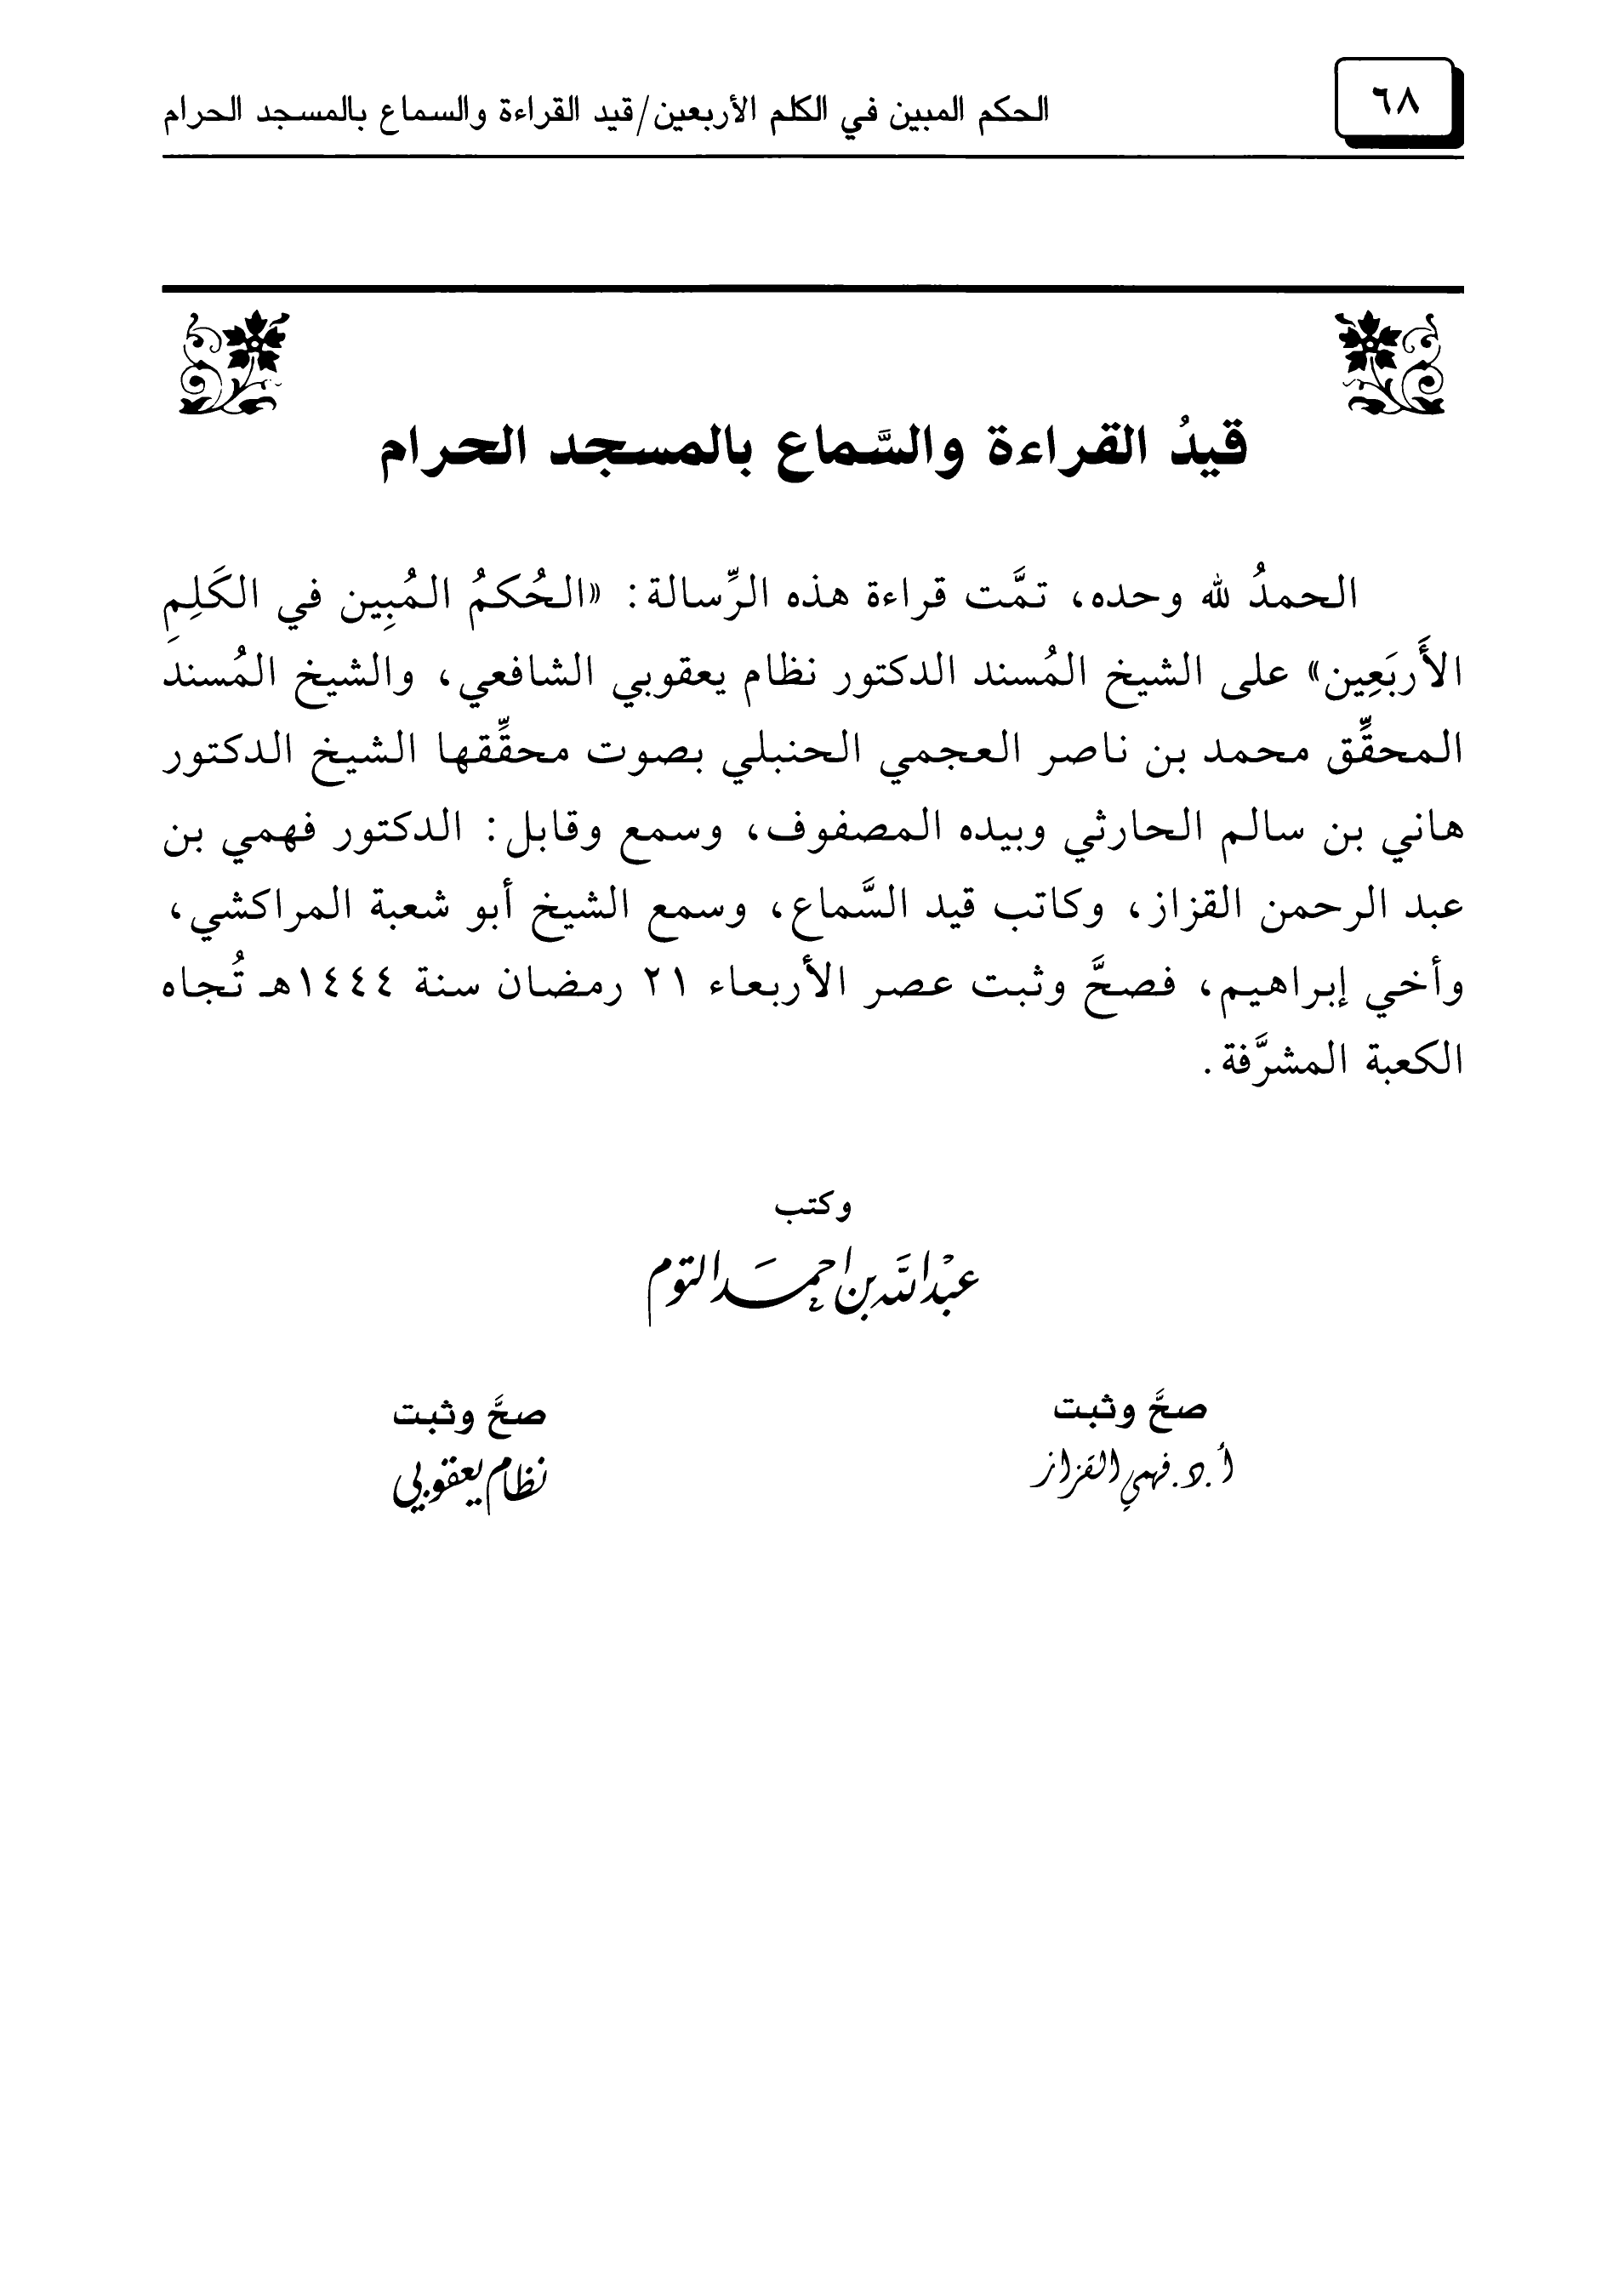 ٦٨
الحكم المبين في الكلم الأربعين/قيد القراءة والسماع بالمسجد الحرام
قيدُ القراءة والسَّماع بالمسجد الحرام
الحمدُ لله وحده، تمَّت قراءة هذه الرِّسالة: «الحُكمُ المُبِين في الكَلِمِ
الأَربَعِين» على الشيخ المُسند الدكتور نظام يعقوبي الشافعي، والشيخ المُسند
المحقِّق محمد بن ناصر العجمي الحنبلي بصوت محقِّقها الشيخ الدكتور
هاني بن سالم الحارثي وبيده المصفوف، وسمع وقابل: الدكتور فهمي بن
عبد الرحمن القزاز، وكاتب قيد السَّماع، وسمع الشيخ أبو شعبة المراكشي،
وأخي إبراهيم، فصحَّ وثبت عصر الأربعاء ٢١ رمضان سنة ١٤٤٤هـ تُجاه
الكعبة المشرَّفة.
وكتب
عبد الله بن احمد التوم
صحَّ وثبت
أ.د. فهمي القزاز
صحَّ وثبت
نظام يعقوبي